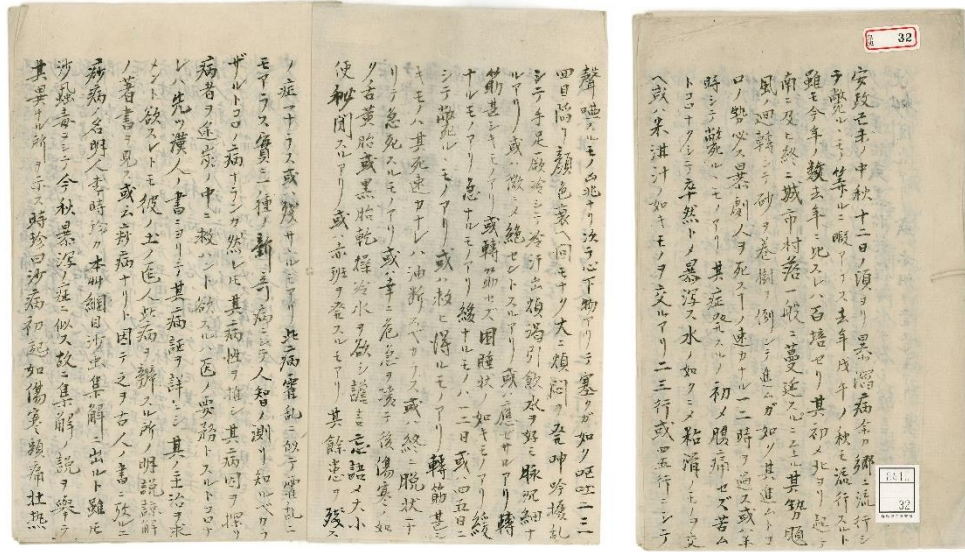 安政己未ノ中秋十二日ノ頃ヨリ暴瀉病余カ郷ニ流行シ
テ斃ルヽモノ算ルニ暇アラス去年戊午ノ秋モ流行スルト
雖モ今年ノ数去年ニ比スレハ百培セリ其初メ北ヨリ起テ
南ニ及ヒ終ニ城市村落一般ニ蔓延スルニ至ル其勢 颶
風ノ回轉シテ砂ヲ巻樹ヲ倒シテ進ムガ如ク其進ムトコ
ロノ勢必ス暴劇人ヲ死スヿノ速カナル一二時ヲ過ス或ハ半
時シテ斃ルヽモノアリ其症 初メ腹痛セズ苦ム
トコロナクシテ卒然トメ暴瀉ス水ノ如クニメ粘滑ノモノヲ交
ヘ或ハ米泔汁ノ如キモノヲ交ルアリ二三行或ハ四五行ニシテ
聲嗄スルモノ凶兆ナリ次テ心下物アリテ塞クガ如ク嘔吐二三
四目陥リ顔色衰ヘ 大ニ煩悶ヲ發呻吟擾乱
シテ手足厥冷シテ冷汗出煩渇引飲水ヲ好ミ脉沉細ナ
ルアリ或ハ微ニメ絶セントスルアリ或ハ應セサルアリ轉
筋甚シキモノアリ或轉筋セズ困睡状ノ如キモノアリ緩
ナルモノアリ急ナルモノアリ緩ナルモノハ一二日或ハ四五日ニ
シテ斃死ルヽモノアリ或ハ救ヒ得ルモノアリ轉筋甚シ
キモノハ其死速カナレハ油断スベカラス或ハ終ニ脱状ニナ
リテ急死スルモノアリ或ハ幸ニ危急ヲ凌テ後傷寒ノ如
ク舌黄胎或黒胎乾燥冷水ヲ欲シ譫言忘語メ大小
便秘閉スルアリ或ハ赤斑ヲ發スルモアリ其餘患ヲ發ス
ノ症一ナラス或ハ發サルモアリ此病霍乱ニ似テ霍乱ニ
モアラス實ニ一種ノ新奇病ニシテ人智ノ測リ知ルベカラ
ザルトコロノ病ナランカ然レ𪜈其病性ヲ推シ其病因ヲ探リ
病者ヲ塗炭ノ中ニ救ハント欲スルハ医ノ要務トスルトコロナ
レハ先ツ漢人ノ書ニヨリテ其病証ヲ詳ニシ其ノ主治ヲ求
メント欲スレトモ彼ノ土ノ近人此病ヲ辨スル所ノ明説諒解
ノ著書ヲ見ス或云痧病ナリト因テ之ヲ古人ノ書ニ徴スルニ
痧病ノ名明人李時珍カ本艸綱目沙虫集解ニ出ルト雖𪜈
沙風毒ニシテ今秋暴瀉ノ症ニ似ス故ニ集解ノ説ヲ舉テ
其異ナル所ヲ示ス時珍曰沙病初起如傷寒頭痛壮熱
32
32